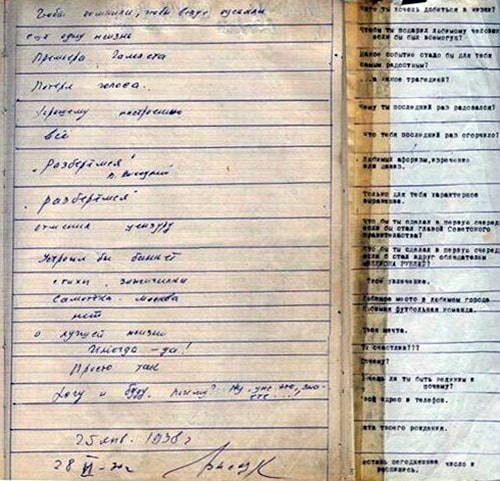 Чтобы помнили, чтобы везде пускали
ещё одну жизнь
Премьера Гамлета
Потеря голоса.
Хорошему настроению
всё
"Разберёмся"
В. Высоцкий
"разберёмся"
отменил цензуру
Устроил бы банкет
стихи, зажигалки
Самотёка - Москва
нет
о лучшей жизни
Иногда - да!
Просто так
Хочу и буду. Почему? Ну, уж это, знаете...,
25 янв. 1938 г
28 VI-70г
чего ты хочешь добиться в жизни?
чтобы ты подарил любимому человеку
если бы был всемогущ?
Какое событие стало бы для тебя
самым радостным?
...а какое трагедией?
чему ты последний раз радовался?
что тебя последний раз огорчило?
Любимый афоризм, изречение
Только для тебя характерное
выражение.
Что бы ты сделал в первую очередь
если бы стал главой Советского
правительства?
Что бы ты сделал в первую очередь
если б стал вдруг обладателем
МИЛЛИОНА РУБЛЕЙ?
Твоё увлечение.
Любимое место в любимом городе
Любимая футбольная команда.
Твоя мечта.
Ты счастлив???
Почему?
Хочешь ли ты быть великим и
почему?
твой адрес и телефон.
дата твоего рождения.
оставь сегодняшнее число и
распишись.